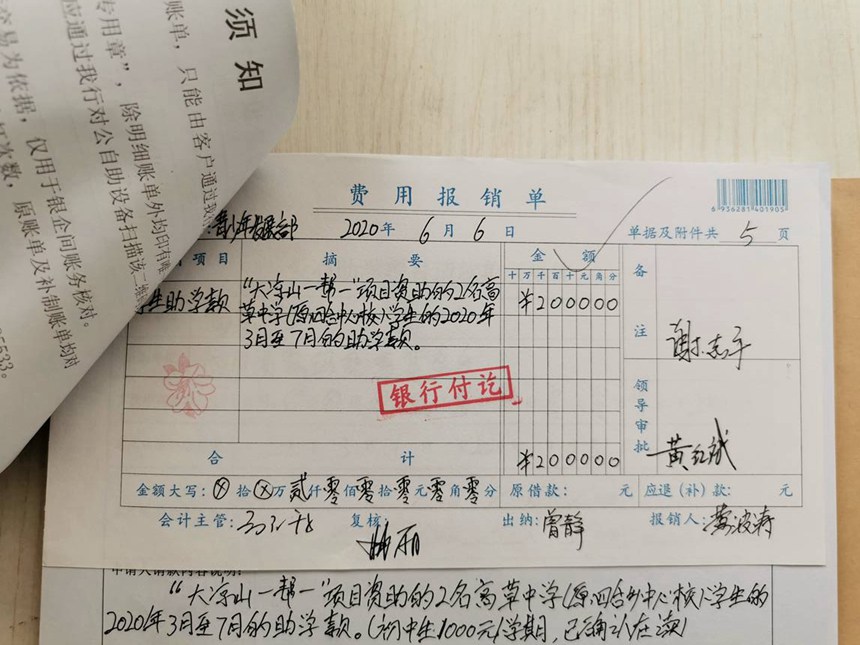 须知
账单，只能由客户通过我
专用章"，除明细账单外均印有唯
应通过我行对公自助设备扫描该二维
交易为依据，仅用于银企间账务核对。
次数，原账单及补制账单均对
95533。
费用报销单
6936281401905
2020年6月6日 单据及附件共5页
项目 摘要 金额 备注
十万千百十元角分
生助学款 "大凉山一帮一"项目资助的2名高 ¥200000
草中学(原四合中心校)学生的2020年
3月至7月的助学款。
谢志平
银行付讫
领导审批
合计 ¥200000
金额大写：ⓧ拾ⓧ万贰仟零佰零拾零元零角零分 原借款： 元 应退（补）款： 元
会计主管： 复核： 出纳：曾静 报销人：
申请人请款内容说明：
"大凉山一帮一"项目资助的2名高草中学(原四合乡中心校)学生的
2020年3月至7月的助学款。(初中生1000元/学期，已确认在读)